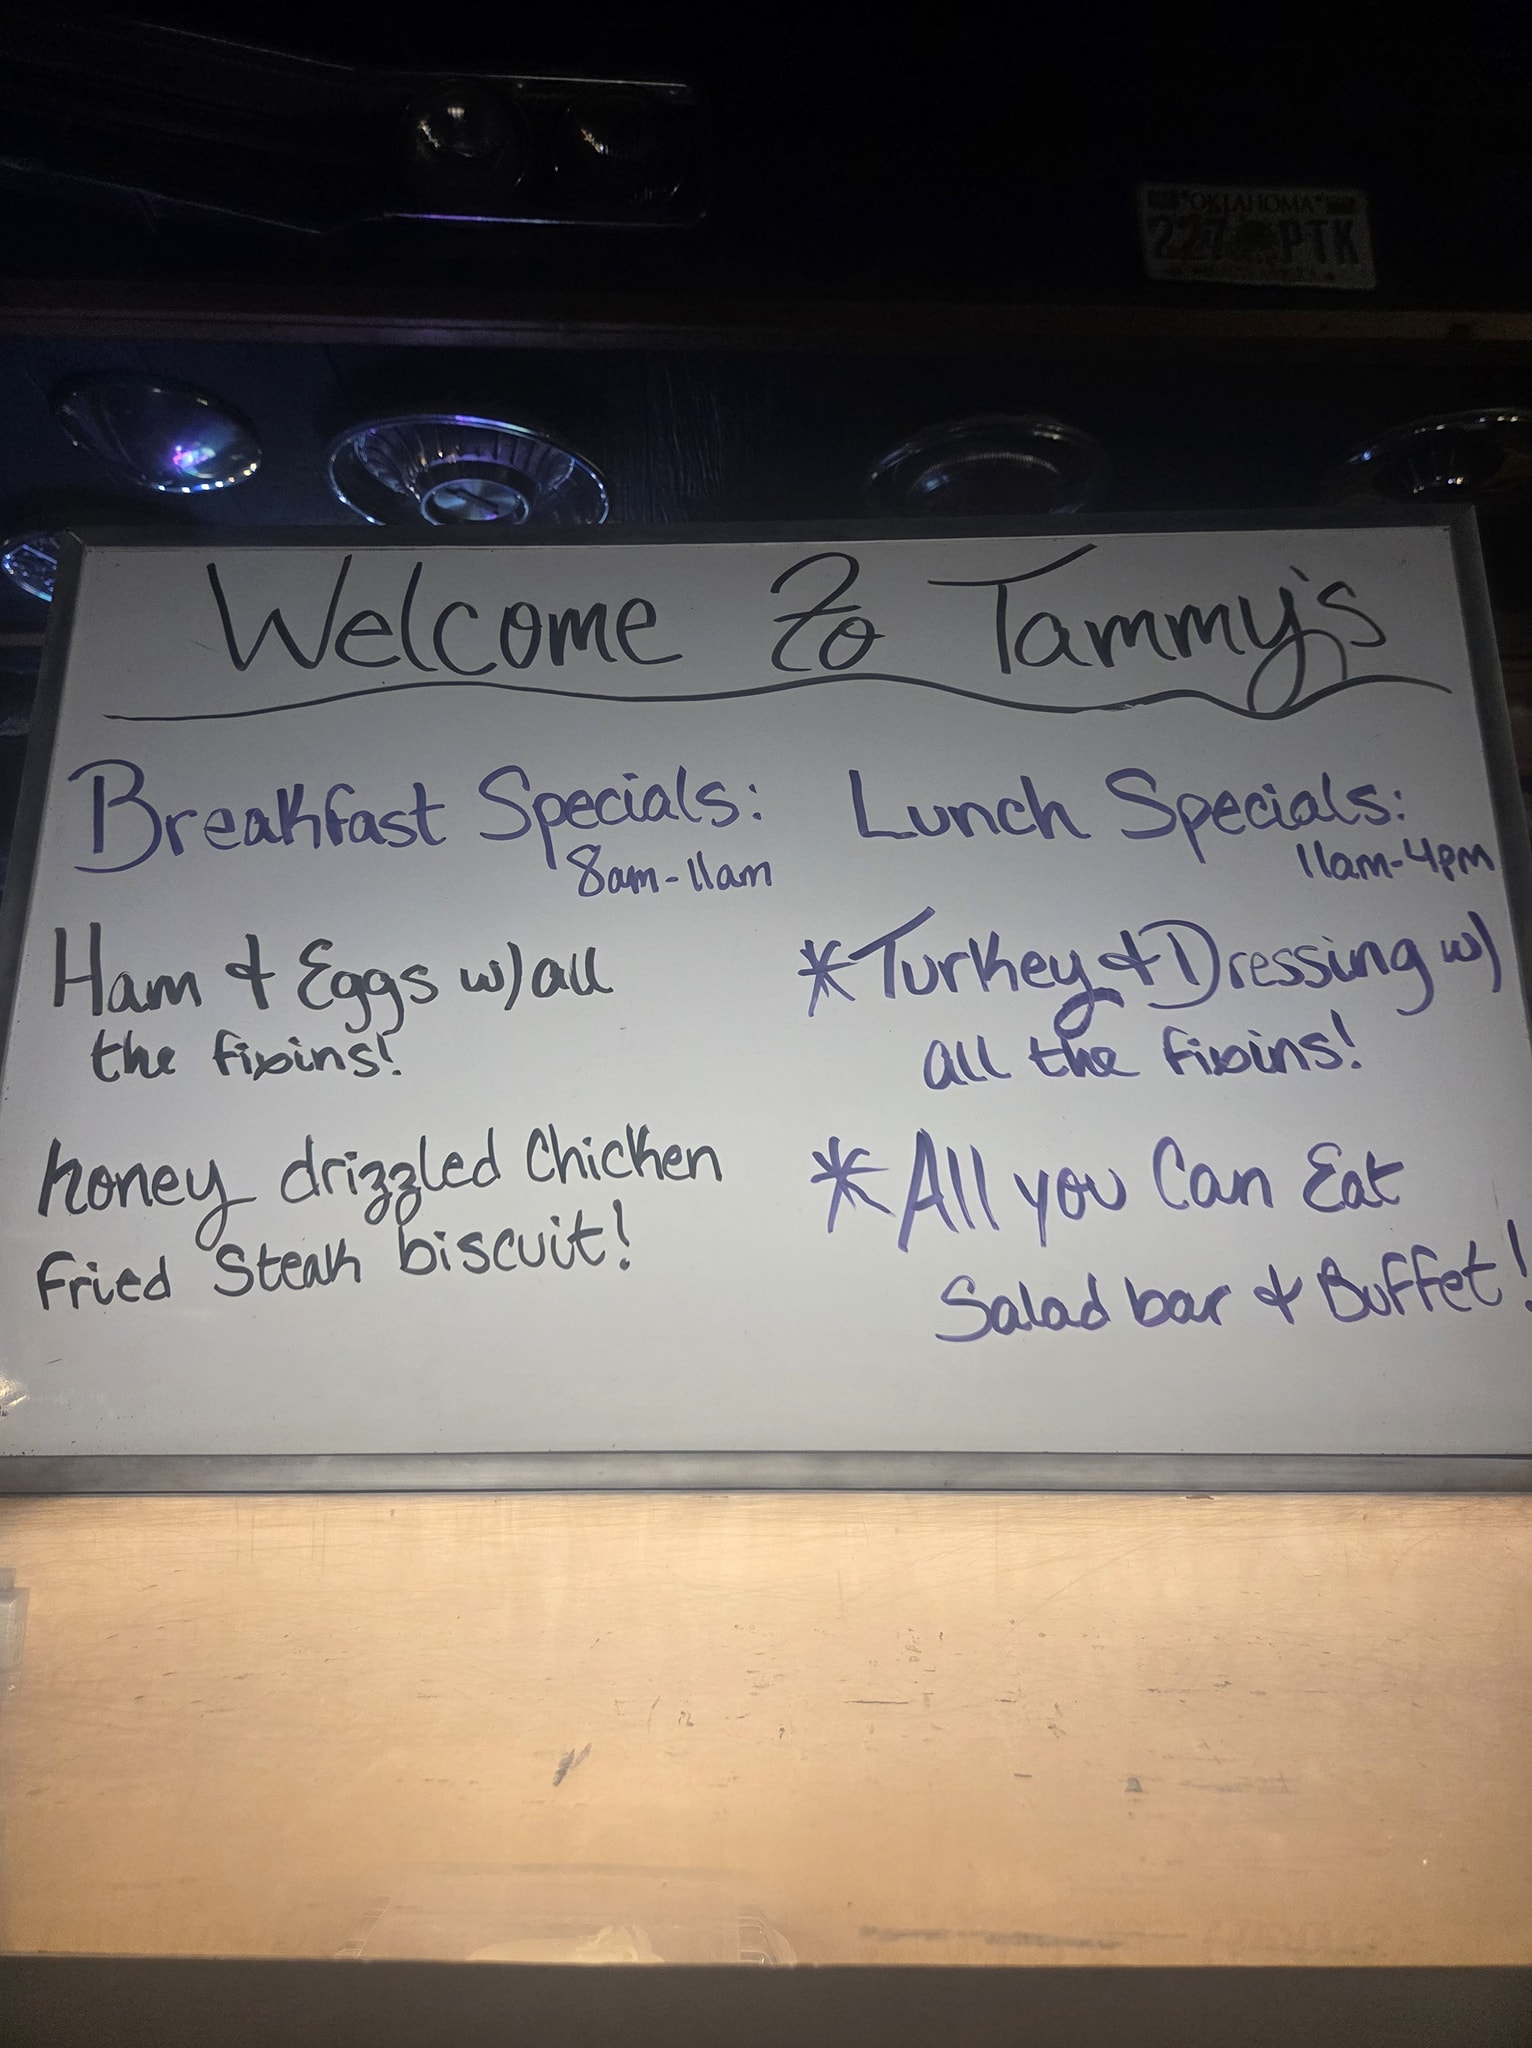 OKLAHOMA
227 PTK
Welcome To Tammy's
Breakfast Specials:
8am-11am
Ham & Eggs w/all
the fixins!
honey drizzled Chicken
Fried Steak biscuit!
Lunch Specials:
11am-4pm
*Turkey & Dressing w/
all the fixins!
*All you Can Eat
Salad bar & Buffet!